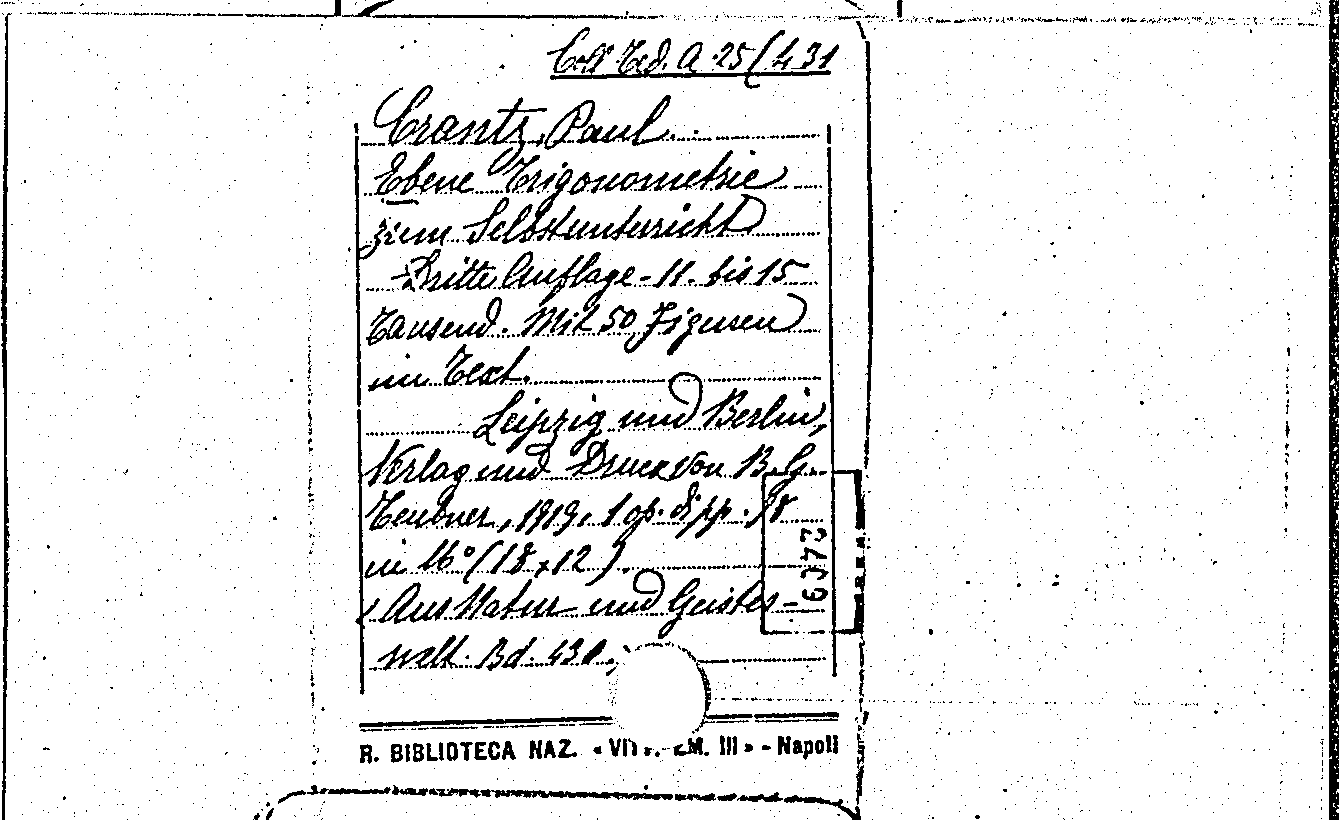 Coll. Ted. A. 25 (431
Crantz, Paul.
Ebene Trigonometrie
zum Selbstunterricht
- Dritte Auflage - 11. bis 15
Tausend. Mit 50 Figuren
im Text.
Leipzig und Berlin,
Verlag und Druck von B. G.
Teubner, 1919, 1 op. di pp. 98
in 16° (18 x 12).
(Aus Natur und Geistes-
welt. Bd. 431.)
R. BIBLIOTECA NAZ. « EM. III » - Napoli